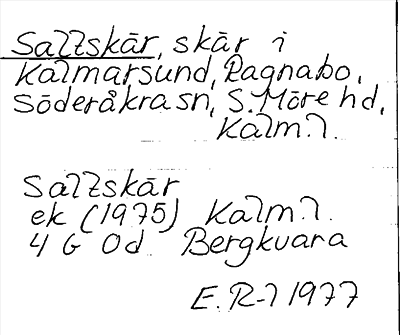 Saltskär, skär i
Kalmarsund, Ragnabo,
Söderåkra sn, S. Möre hd,
Kalm. l.
Saltskär
ek (1975) Kalm. l.
4 G 0d Bergkvara
E. R-l 1977